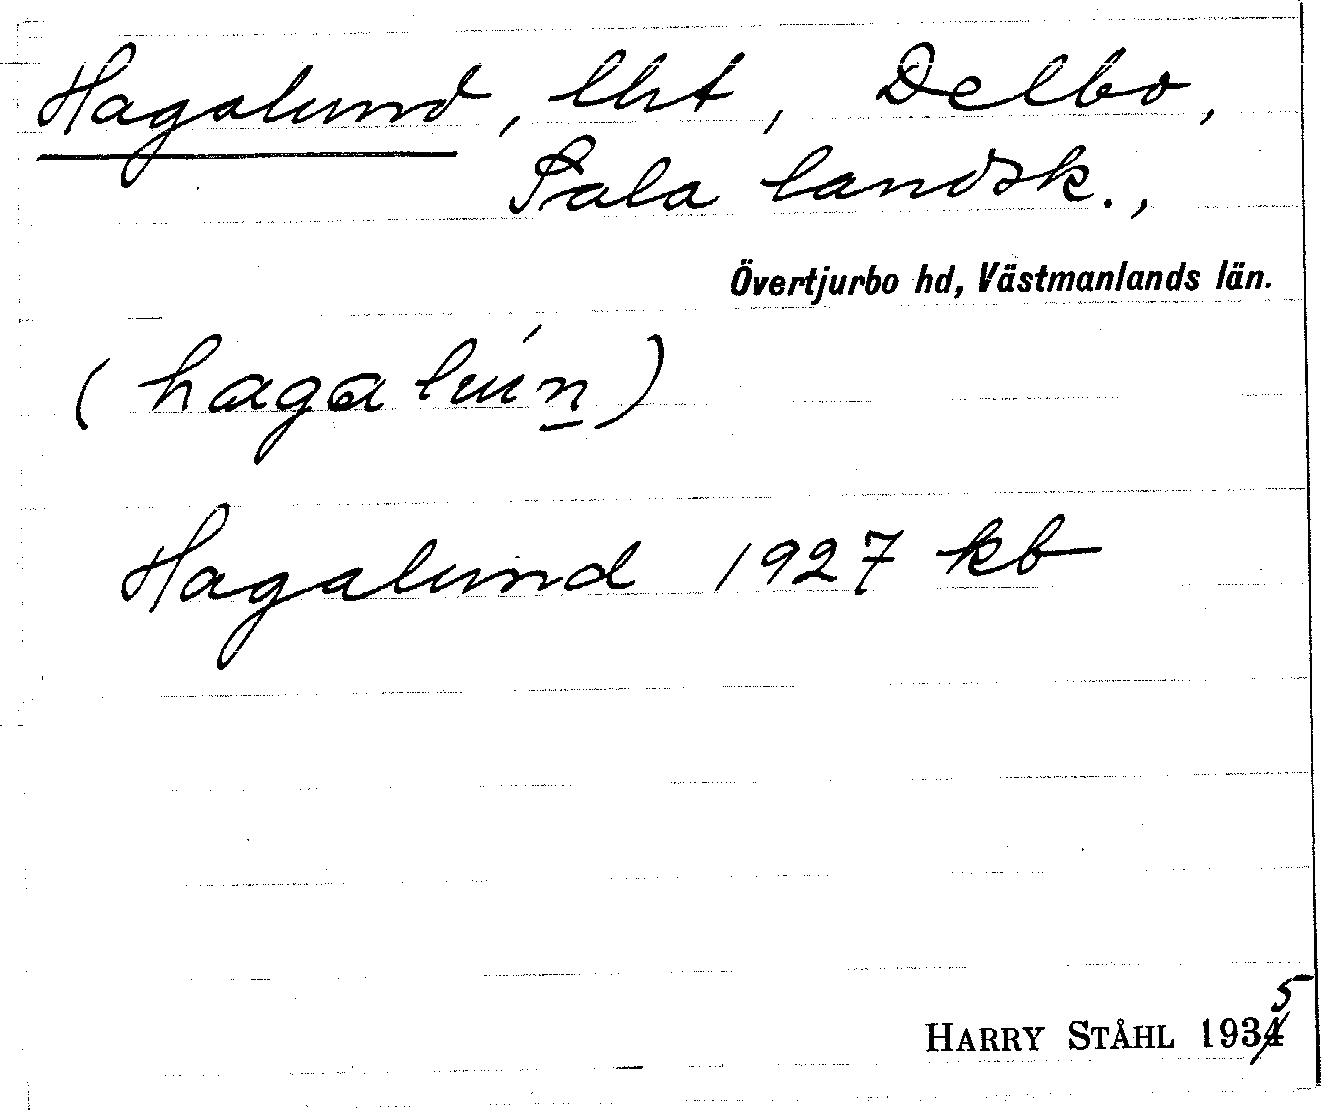 Hagalund, lht, Delbo,
Sala landsk.,
Övertjurbo hd, Västmanlands län.
(hagalún̲)
Hagalund 1927 kb
HARRY STÅHL 1935